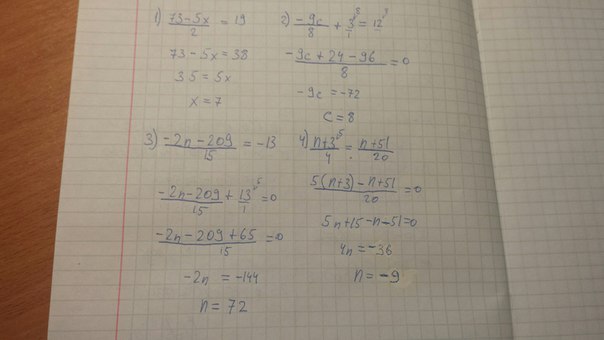 1) (73-5x)/2 = 19
73-5x=38
35=5x
x=7
2) (-9c)/8 + 3/1^8 = 12^8
(-9c+24-96)/8 =0
-9c=-72
c=8
3) (-2n-209)/15 = -13
(-2n-209)/15 + 13/1^5 =0
(-2n-209+65)/15 =0
-2n = -144
n = 72
4) (n+3)/4^5 = (n+51)/20
(5(n+3)-n+51)/20 =0
5n+15-n-51=0
4n=-36
n=-9